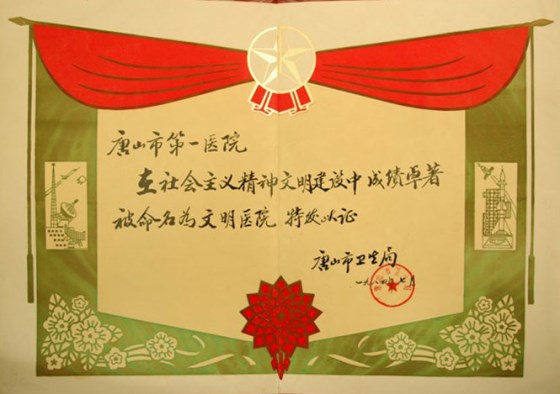 唐山市第一医院
在社会主义精神文明建设中成绩卓著
被命名为文明医院 特发此证
唐山市卫生局